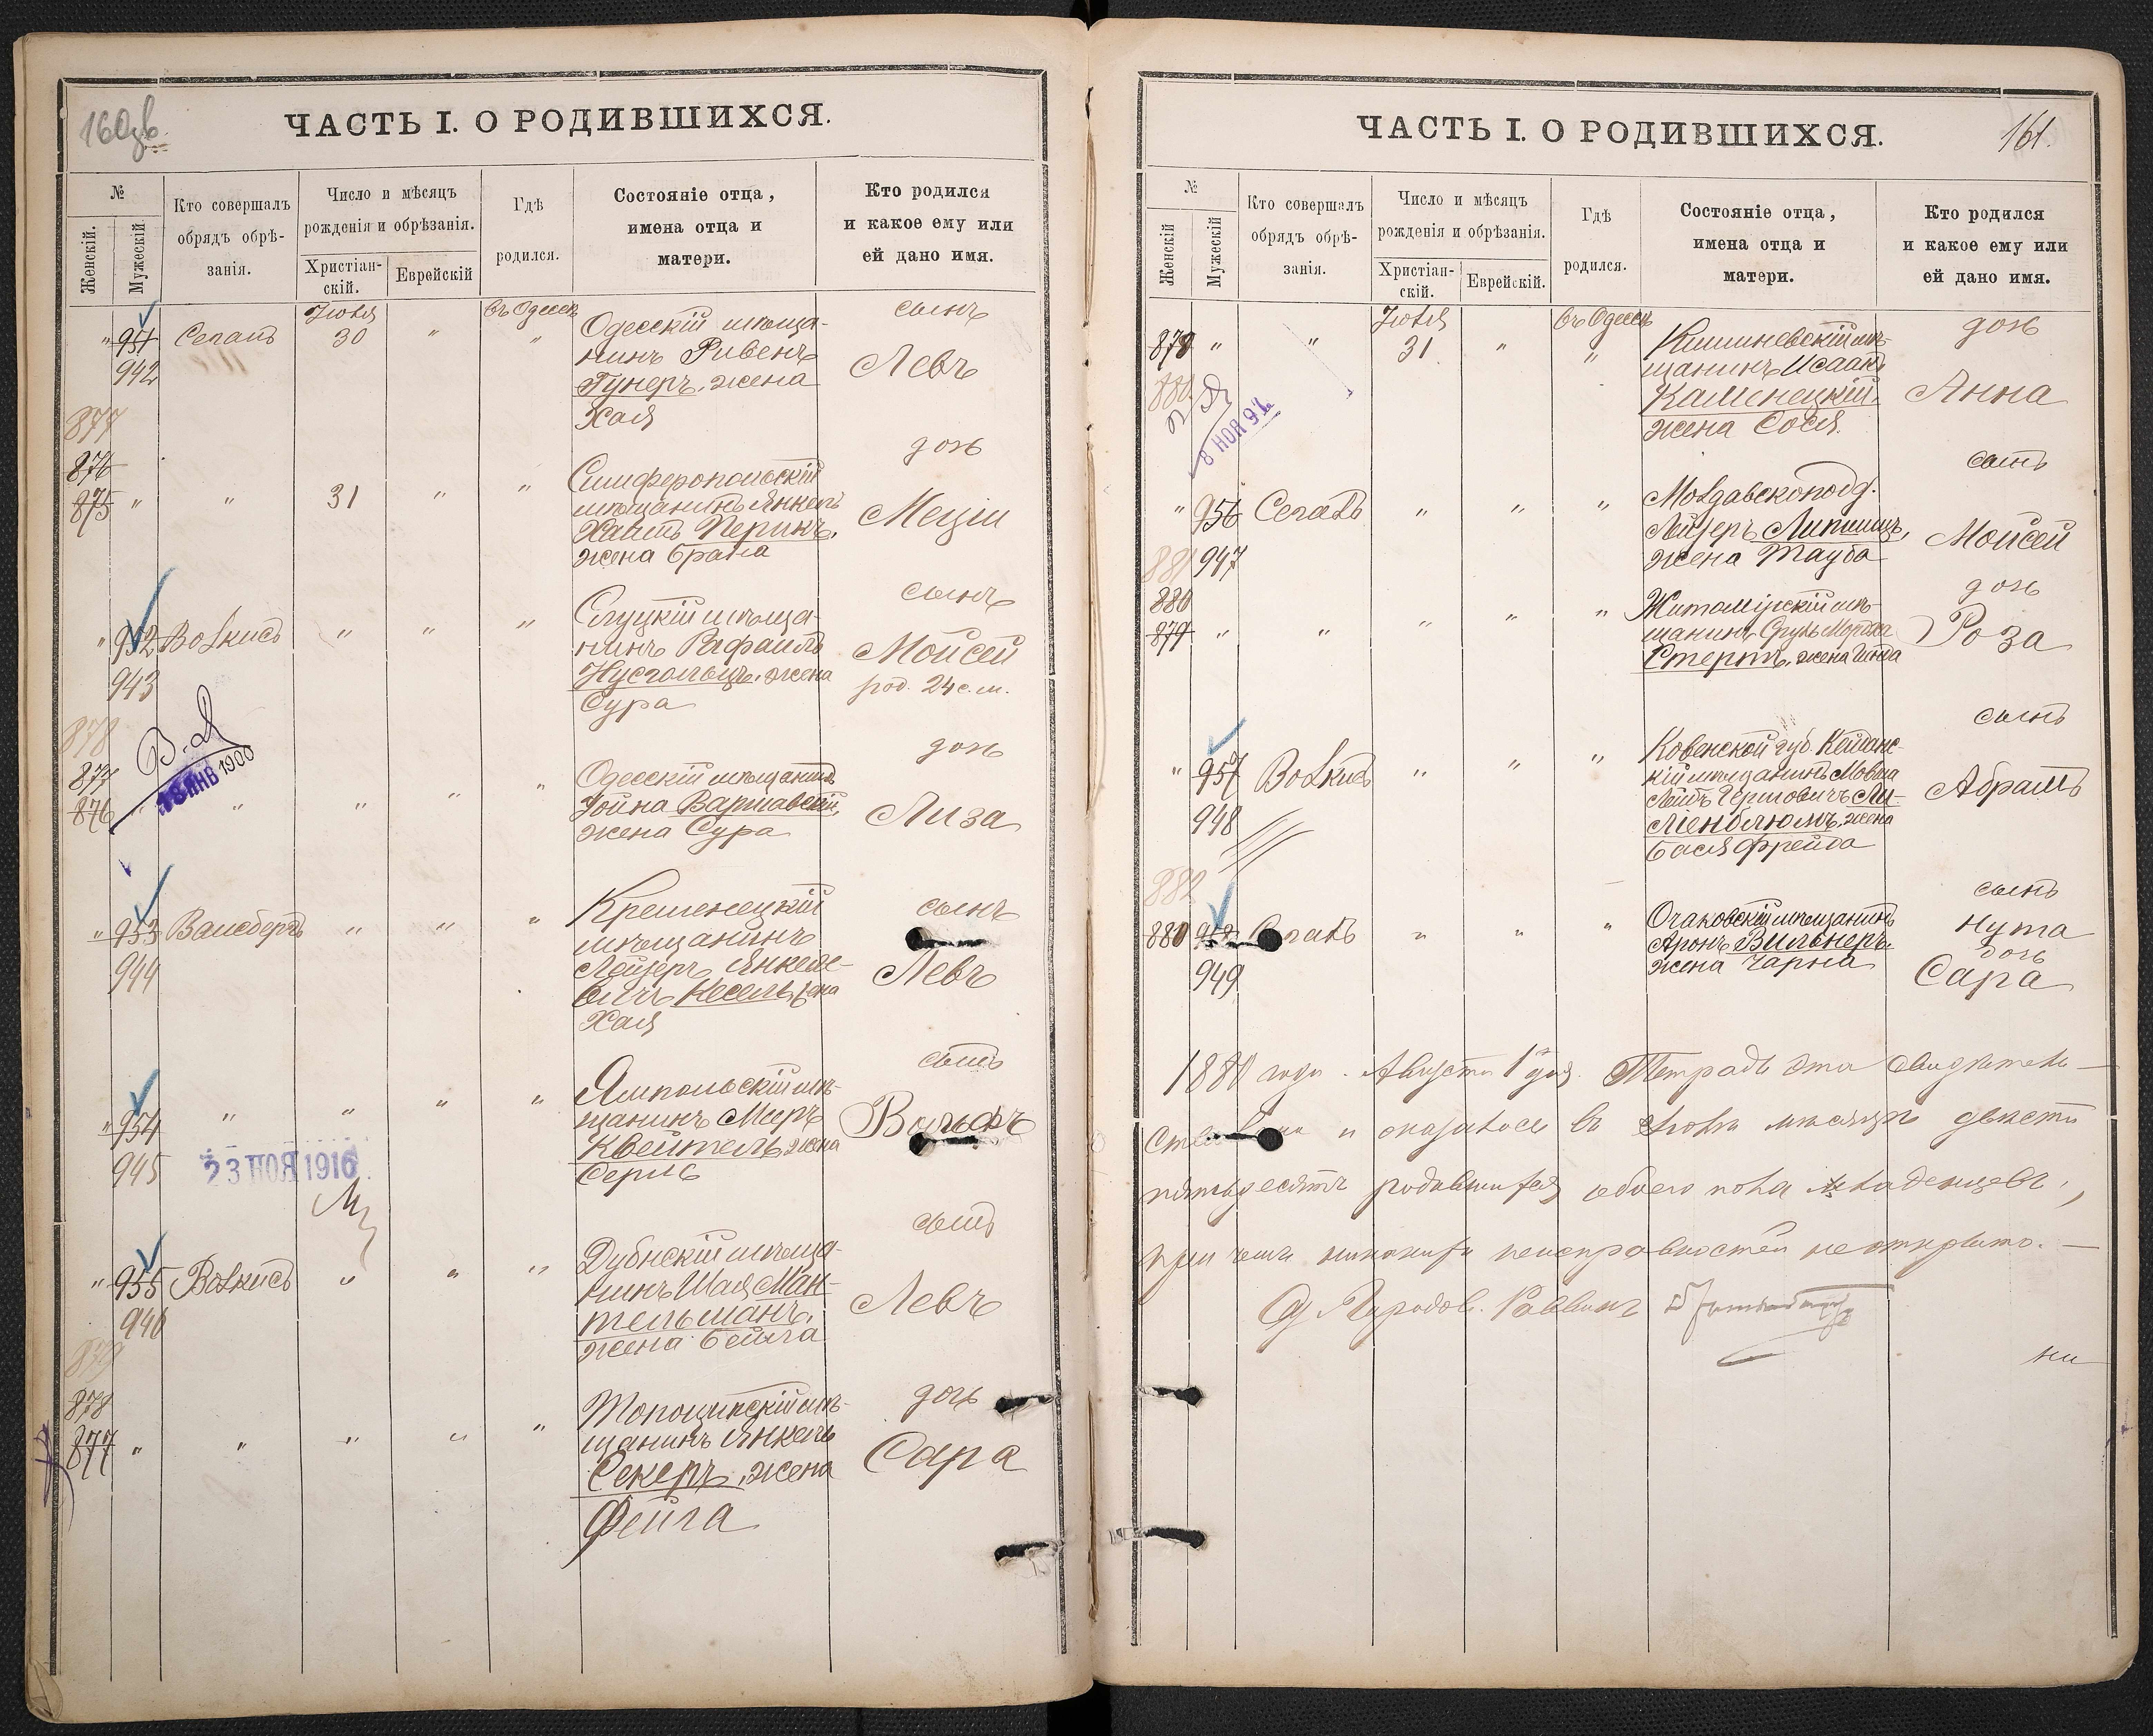 160 об.
ЧАСТЬ I. О РОДИВШИХСЯ.
№
Женскій.
Мужескій
Кто совершалъ
обрядъ обрѣ-
занія.
Число и мѣсяцъ
рожденія и обрѣзанія.
Христіан-
скій.
Еврейскій
Гдѣ
родился.
Состояніе отца,
имена отца и
матери.
Кто родился
и какое ему или
ей дано имя.
Іюля
въ Одессѣ
" 951 Сегалъ 30 " "
942
Одесскій мѣща-
нинъ Рувенъ
Гунеръ, жена
Хая
сынъ
Левъ
877
876
875 " " 31 " "
Симферопольскій
мѣщанинъ Янкель
Хаимъ Перикъ,
жена Брана
дочь
" 952 Волкисъ " " "
943
Слуцкій мѣща-
нинъ Рафаилъ
жена
Сура
сынъ
Моисей
род. 24 с. м.
878
877
876 " " " " "
В. Д
18 ЯНВ 1900
Одесскій мѣщанинъ
Іойна Варшавскій,
жена Сура
дочь
Лиза
" 953 Ваисбергъ " " "
944
Кременецкій
мѣщанинъ
Лейзеръ Янкеле-
вичъ Кесель, жена
Хая
сынъ
Левъ
" 954 " " " "
945
23 НОЯ 1916
Ямпольскій мѣ-
щанинъ Меръ
Квейтель, жена
Серль
сынъ
Вольфъ
" 955 Волкисъ " " "
946
Дубнскій мѣща-
нинъ Шая Ман-
тельманъ,
жена Бейла
сынъ
Левъ
879
878
877 " " " " "
мѣ-
щанинъ Янкель
Секеръ, жена
Фейга
дочь
Сара
161.
ЧАСТЬ I. О РОДИВШИХСЯ.
№
Женскій
Мужескій
Кто совершалъ
обрядъ обрѣ-
занія.
Число и мѣсяцъ
рожденія и обрѣзанія.
Христіан-
скій.
Еврейскій.
Гдѣ
родился.
Состояніе отца,
имена отца и
матери.
Кто родился
и какое ему или
ей дано имя.
Іюля
въ Одессѣ
878 " " 31 " "
880
8 НОЯ 9
Кишиневскій мѣ-
щанинъ Исаакъ
Каменецкій,
жена Сося
дочь
Анна
" 956 Сегалъ " " "
947
Молдавскопод.
Лейзеръ Липшицъ,
жена Тауба
сынъ
Моисей
881
880
879 " " " " "
Житомірскій мѣ-
щанинъ Сруль
Стернъ, жена
дочь
Роза
" 957 Волкисъ " " "
948
Ковенской губ. Кейданс-
кій мѣщанинъ Мовша
Лейбъ Гершовичъ Ли-
ліенблюмъ, жена
Бася Фрейда
сынъ
Абрамъ
882
880 958 Сегалъ " " "
949
Очаковскій мѣщанинъ
Аронъ Вильнеръ,
жена Чарна
сынъ
Нута
дочь
Сара
188 года. Августа 1 дня. Тетрадь эта свидѣтель-
и оказалось въ Іюлѣ мѣсяцѣ двѣсти
пятьдесятъ родившихся обоего пола младенцевъ,
при чемъ никакихъ неисправностей не открыто.
Городов. Раввинъ